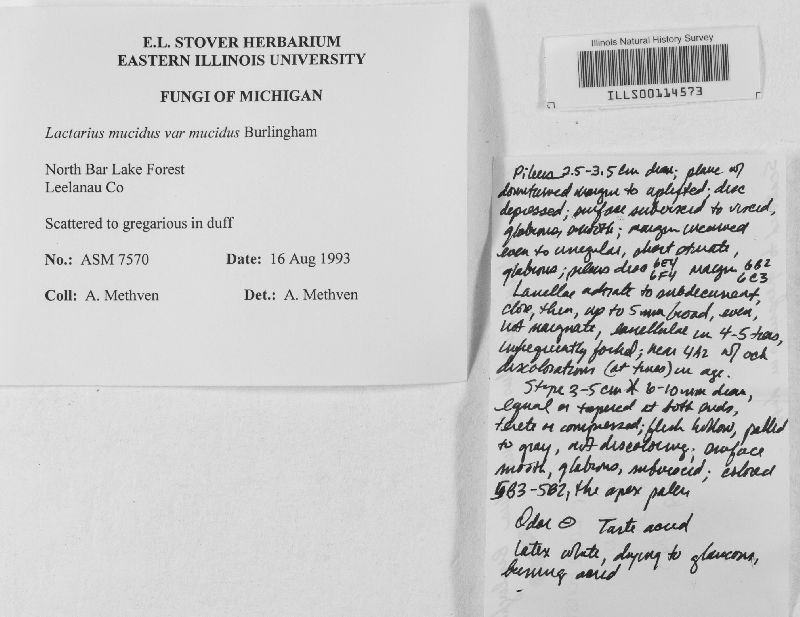 E.L. STOVER HERBARIUM
EASTERN ILLINOIS UNIVERSITY
FUNGI OF MICHIGAN
Lactarius mucidus var mucidus Burlingham
North Bar Lake Forest
Leelanau Co
Scattered to gregarious in duff
No.: ASM 7570 Date: 16 Aug 1993
Coll: A. Methven Det.: A. Methven
Illinois Natural History Survey
ILLS00114573
Pileus 2.5-3.5 cm diam; plane w/
downturned margin to uplifted; disc
depressed; surface subviscid to viscid,
glabrous, smooth; margin incurved
even to irregular, short striate,
glabrous; pileus disc 6E4 6F4 margin 6B2 6C3
Lamellae adnate to subdecurrent,
close, thin, up to 5 mm broad, even,
not marginate, lamellulae in 4-5 tiers,
infrequently forked; near 4A2 w/ och
discolorations (at times) in age.
Stipe 3-5 cm X 6-10 mm diam,
equal or tapered at both ends,
terete or compressed; flesh hollow, pallid
to gray, not discoloring; surface
smooth, glabrous, subviscid; colored
5B3-5B2, the apex paler
Odor ⊖ Taste acrid
Latex white, drying to glaucous,
burning acrid